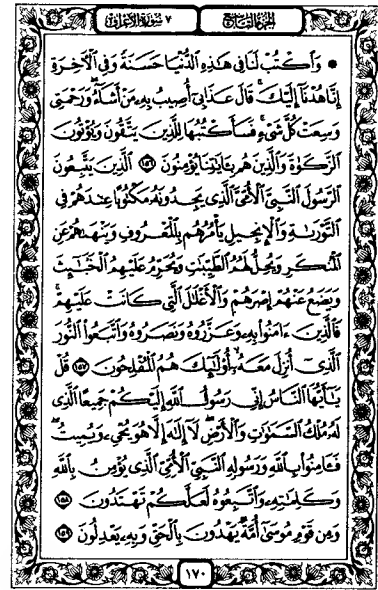 الجزء التاسع ٧ سورة الأعراف
۞ وَاكْتُبْ لَنَا فِي هَٰذِهِ الدُّنْيَا حَسَنَةً وَفِي الْآخِرَةِ
إِنَّا هُدْنَا إِلَيْكَ ۚ قَالَ عَذَابِي أُصِيبُ بِهِ مَنْ أَشَاءُ ۖ وَرَحْمَتِي
وَسِعَتْ كُلَّ شَيْءٍ ۚ فَسَأَكْتُبُهَا لِلَّذِينَ يَتَّقُونَ وَيُؤْتُونَ
الزَّكَوٰةَ وَالَّذِينَ هُم بِـَٔايَٰتِنَا يُؤْمِنُونَ ١٥٦ الَّذِينَ يَتَّبِعُونَ
الرَّسُولَ النَّبِيَّ الْأُمِّيَّ الَّذِي يَجِدُونَهُ مَكْتُوبًا عِندَهُمْ فِي
التَّوْرَىٰةِ وَالْإِنجِيلِ يَأْمُرُهُم بِالْمَعْرُوفِ وَيَنْهَىٰهُمْ عَنِ
الْمُنكَرِ وَيُحِلُّ لَهُمُ الطَّيِّبَٰتِ وَيُحَرِّمُ عَلَيْهِمُ الْخَبَٰٓئِثَ
وَيَضَعُ عَنْهُمْ إِصْرَهُمْ وَالْأَغْلَٰلَ الَّتِي كَانَتْ عَلَيْهِمْ ۚ
فَالَّذِينَ ءَامَنُوا بِهِ وَعَزَّرُوهُ وَنَصَرُوهُ وَاتَّبَعُوا النُّورَ
الَّذِي أُنزِلَ مَعَهُ ۙ أُولَٰٓئِكَ هُمُ الْمُفْلِحُونَ ١٥٧ قُلْ
يَٰٓأَيُّهَا النَّاسُ إِنِّي رَسُولُ اللَّهِ إِلَيْكُمْ جَمِيعًا الَّذِي
لَهُ مُلْكُ السَّمَٰوَٰتِ وَالْأَرْضِ ۖ لَآ إِلَٰهَ إِلَّا هُوَ يُحْيِي وَيُمِيتُ ۖ
فَـَٔامِنُوا بِاللَّهِ وَرَسُولِهِ النَّبِيِّ الْأُمِّيِّ الَّذِي يُؤْمِنُ بِاللَّهِ
وَكَلِمَٰتِهِ وَاتَّبِعُوهُ لَعَلَّكُمْ تَهْتَدُونَ ١٥٨
وَمِن قَوْمِ مُوسَىٰٓ أُمَّةٌ يَهْدُونَ بِالْحَقِّ وَبِهِ يَعْدِلُونَ ١٥٩
١٧٠